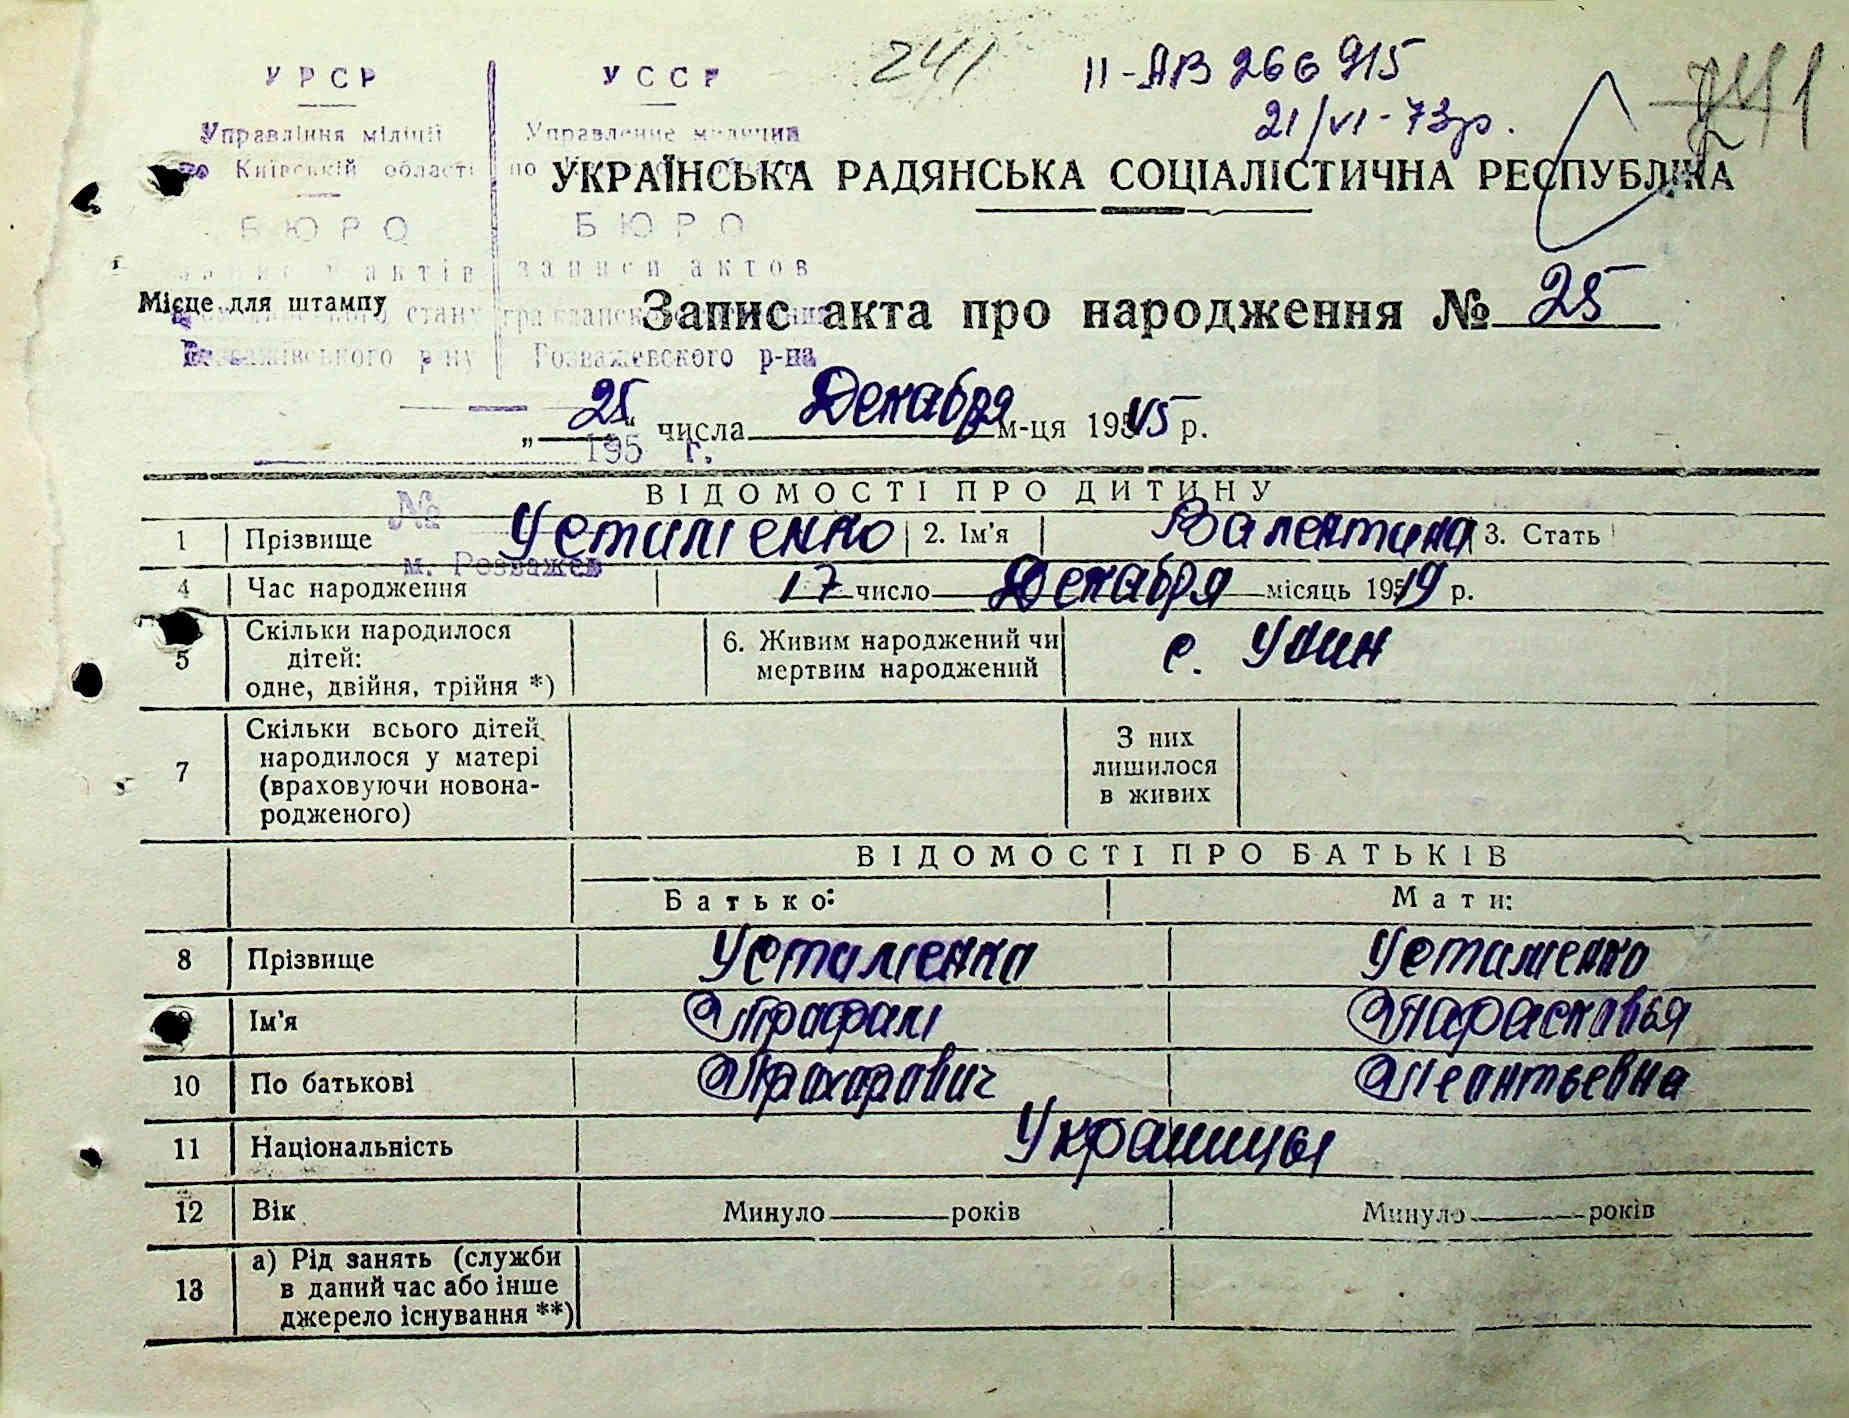 241
II-АВ 266915
21/VI-73р.
241
УРСР
УССР
Управління міліції
Управление милиции
по Київській області
по
УКРАЇНСЬКА РАДЯНСЬКА СОЦІАЛІСТИЧНА РЕСПУБЛІКА
БЮРО
БЮРО
актів
записи актов
Місце для штампу
стану
гражданского
Запис акта про народження № 25
Розважівського р-ну
Розважевского р-на
„ 25 " числа Декабря м-ця 1945 р.
195 г.
ВІДОМОСТІ ПРО ДИТИНУ
№
1 Прізвище Устименко 2. Ім'я Валентина 3. Стать
м. Розважев
4 Час народження 17 число Декабря місяць 195 19 р.
5 Скільки народилося дітей: одне, двійня, трійня *)
6. Живим народжений чи мертвим народжений
с.
7 Скільки всього дітей народилося у матері (враховуючи новонародженого)
З них лишилося в живих
ВІДОМОСТІ ПРО БАТЬКІВ
Батько:
Мати:
8 Прізвище Устименко Устименко
9 Ім'я Парасковья
10 По батькові
11 Національність Украинцы
12 Вік Минуло років Минуло років
13 а) Рід занять (служби в даний час або інше джерело існування **)